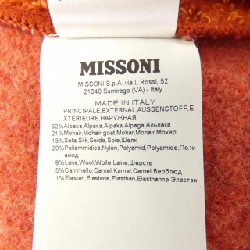 MISSONI
MISSONI S.p.A. via L. Rossi, 52
21040 Sumirago (VA) - Italy
MADE IN ITALY
PRINCIPALE, EXTERNAL, AUSSENSTOFF, E
XTERIEURE, НАРУЖНАЯ
32% Alpaca, Alpaca, Alpaka, Alpaga, Альпака
21% Mohair, Mohair goat, Mohair, Mohair, Мохер
13% Seta, Silk, Seide, Soie, Шелк
20% Poliammidica, Nylon, Polyamid, Polyamide,
8% Lana, Wool, Wolle, Laine, Шерсть
5% Cammello, Camel, Kamel, Camel
1% Elastan, Elastane, Elasthan, Elasthanne, Эластан